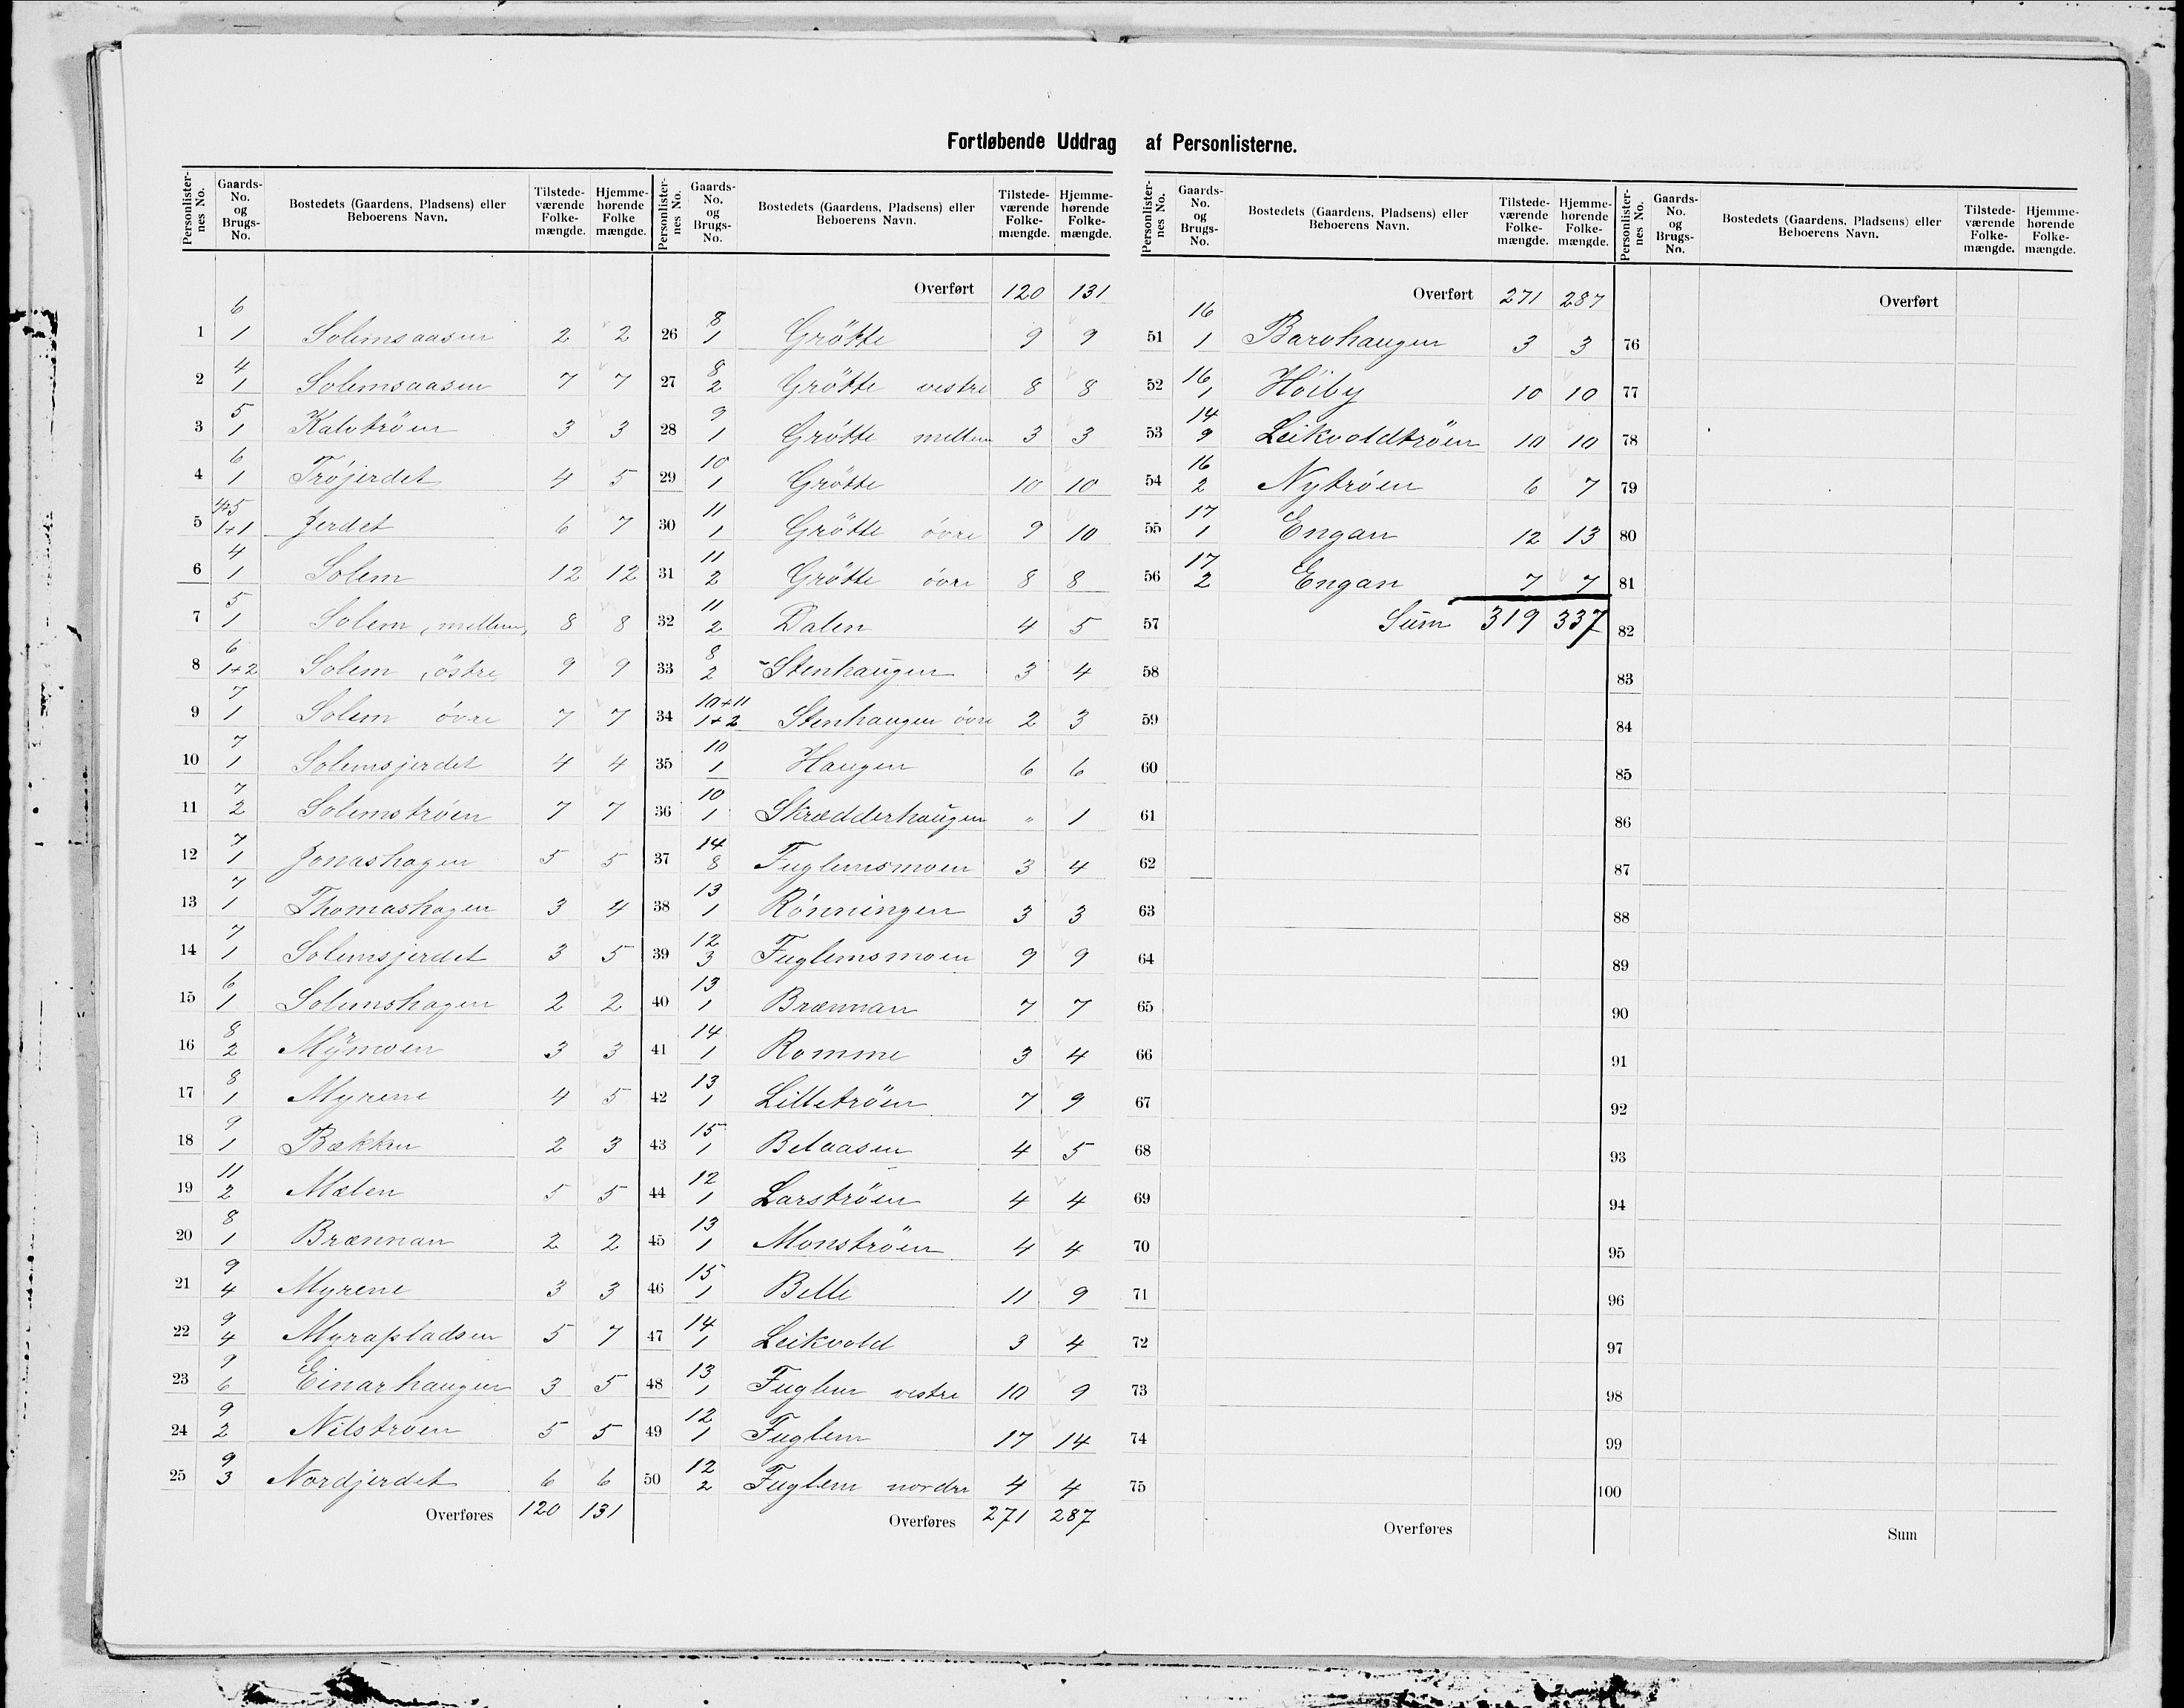 Fortløbende Uddrag af Personlisterne.
Personlister-nes No. Gaards-No. og Brugs-No. Bostedets (Gaardens, Pladsens) eller Beboerens Navn. Tilstede-værende Folke-mængde. Hjemme-hørende Folke mængde.
1 6/1 Solemsaasen 2 2
2 4/1 Solemsaasen 7 7
3 5/1 Kalvtröen 3 3
4 6/1 Tröjerdet 4 5
5 4+5/1+1 Jerdet 6 7
6 4/1 Solem 12 12
7 5/1 Solem, mellem, 8 8
8 6/1+2 Solem, östre 9 9
9 7/1 Solem övre 7 7
10 7/1 Solemsjerdet 4 4
11 7/2 Solemströen 7 7
12 7/1 Jonashagen 5 5
13 7/1 Thomashagen 3 4
14 7/1 Solemsjerdet 3 5
15 6/1 Solemshagen 2 2
16 8/2 Mÿmoen 3 3
17 8/1 Myrene 4 5
18 9/1 Bækken 2 3
19 11/2 Mælen 5 5
20 8/1 Brænnan 2 2
21 9/4 Myrene 3 3
22 9/4 Myrapladsen 5 7
23 9/6 Einarhaugen 3 5
24 9/2 Nilströen 5 5
25 9/3 Nordjerdet 6 6
Overføres 120 131
Personlister-nes No. Gaards-No. og Brugs-No. Bostedets (Gaardens, Pladsens) eller Beboerens Navn. Tilstede-værende Folke-mængde. Hjemme-hørende Folke-mængde.
Overført 120 131
26 8/1 Grötte 9 9
27 8/2 Grötte vestre 8 8
28 9/1 Grötte mellem 3 3
29 10/1 Grötte 10 10
30 11/1 Grötte övre 9 10
31 11/2 Grötte övre 8 8
32 11/2 Dalen 4 5
33 8/2 Stenhaugen 3 4
34 10+11/1+2 Stenhaugen övre 2 3
35 10/1 Haugen 6 6
36 10/1 Skrædderhaugen " 1
37 14/8 Fuglemsmoen 3 4
38 13/1 Rönningen 3 3
39 12/3 Fuglemsmoen 9 9
40 13/1 Brænnan 7 7
41 14/1 Romme 3 4
42 13/1 Lilletröen 7 9
43 15/1 Belaasen 4 5
44 12/1 Larströen 4 4
45 13/1 Monströen 4 4
46 15/1 Belle 11 9
47 14/1 Leikvold 3 4
48 13/1 Fuglem vestre 10 9
49 12/1 Fuglem 17 14
50 12/2 Fuglem nordre 4 4
Overføres 271 287
Personlister-nes No. Gaards-No. og Brugs-No. Bostedets (Gaardens, Pladsens) eller Beboerens Navn. Tilstede-værende Folke-mængde. Hjemme-hørende Folke-mængde.
Overført 271 287
51 16/1 Barohaugen 3 3
52 16/1 Höiby 10 10
53 14/9 Leikvoldtröen 10 10
54 16/2 Nytröen 6 7
55 17/1 Engan 12 13
56 17/2 Engan 7 7
57 Sum 319 337
58
59
60
61
62
63
64
65
66
67
68
69
70
71
72
73
74
75
Overføres
Personlister-nes No. Gaards-No. og Brugs-No. Bostedets (Gaardens, Pladsens) eller Beboerens Navn. Tilstede-værende Folke-mængde. Hjemme-hørende Folke-mængde.
Overført
76
77
78
79
80
81
82
83
84
85
86
87
88
89
90
91
92
93
94
95
96
97
98
99
100
Sum